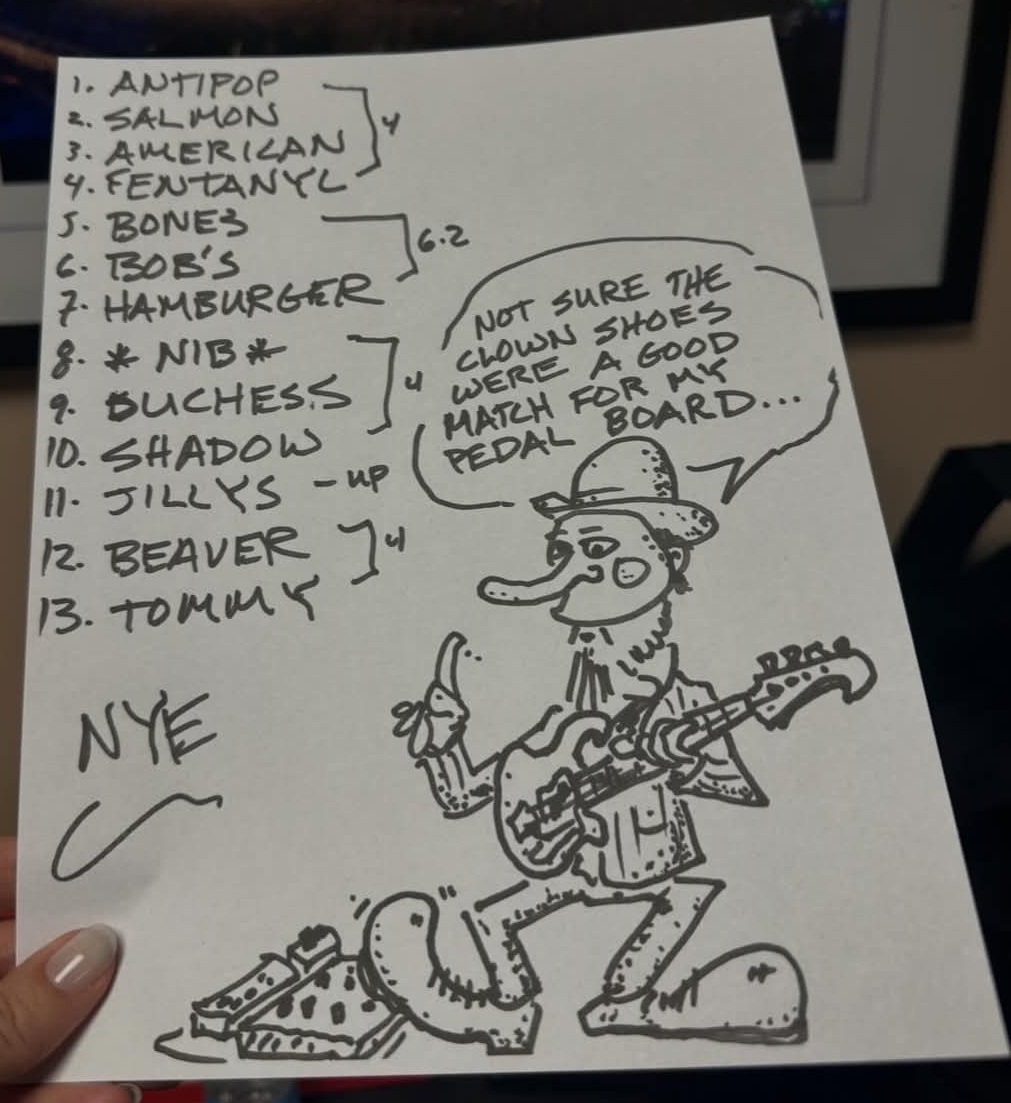 1. ANTIPOP
2. SALMON
3. AMERICAN
4. FENTANYL
4
5. BONES
6. BOB'S
6.2
7. HAMBURGER
8. * NIB *
9. DUCHESS
10. SHADOW
4
11. JILLYS - UP
12. BEAVER
13. TOMMY
4
NYE
NOT SURE THE
CLOWN SHOES
WERE A GOOD
MATCH FOR MY
PEDAL BOARD...